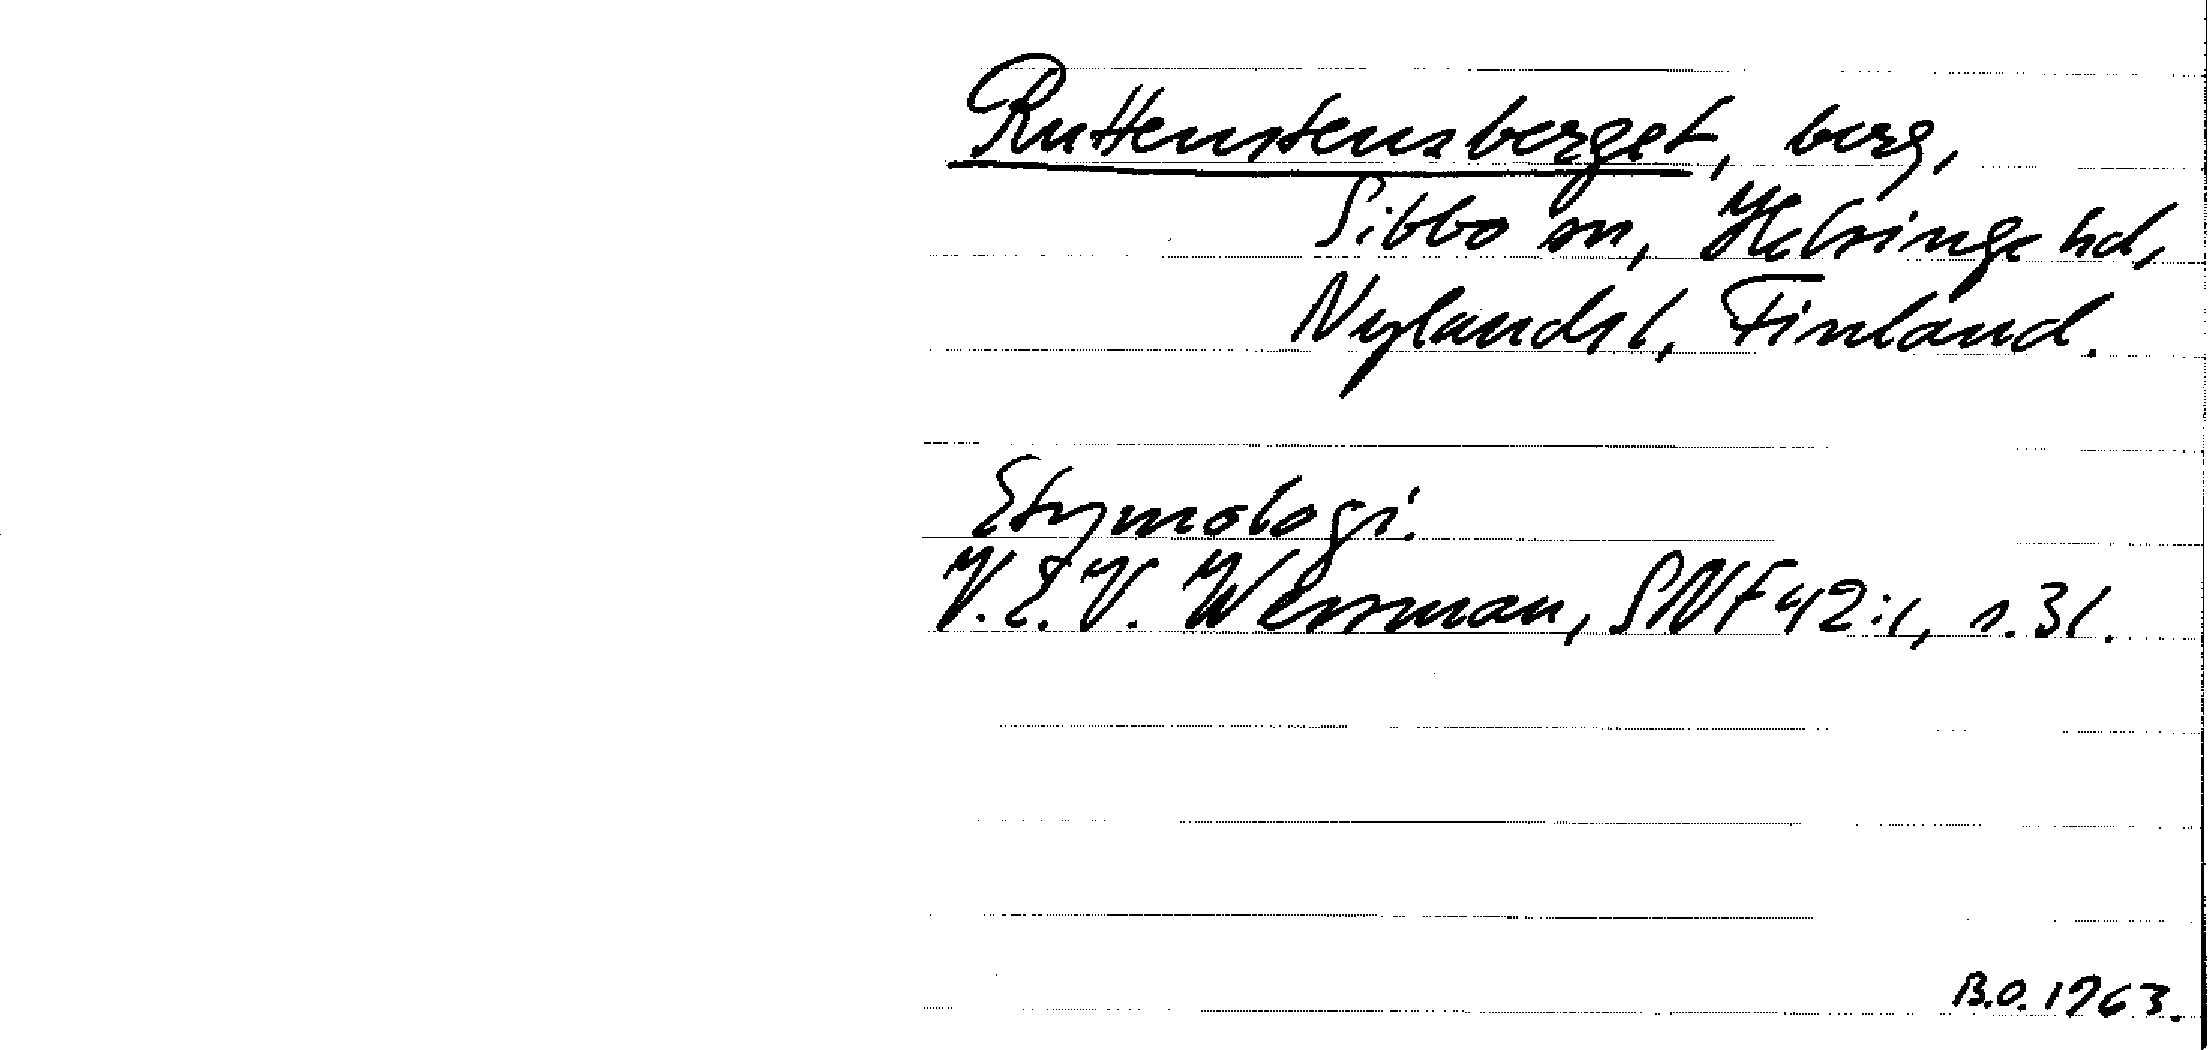 Ruttenstensberget, berg,
Sibbo sn, Helsinge hd,
Nylands l, Finland.
Etymologi.
V.E.V. Wessman, SNF 42:1, s.31.
B.O. 1963.